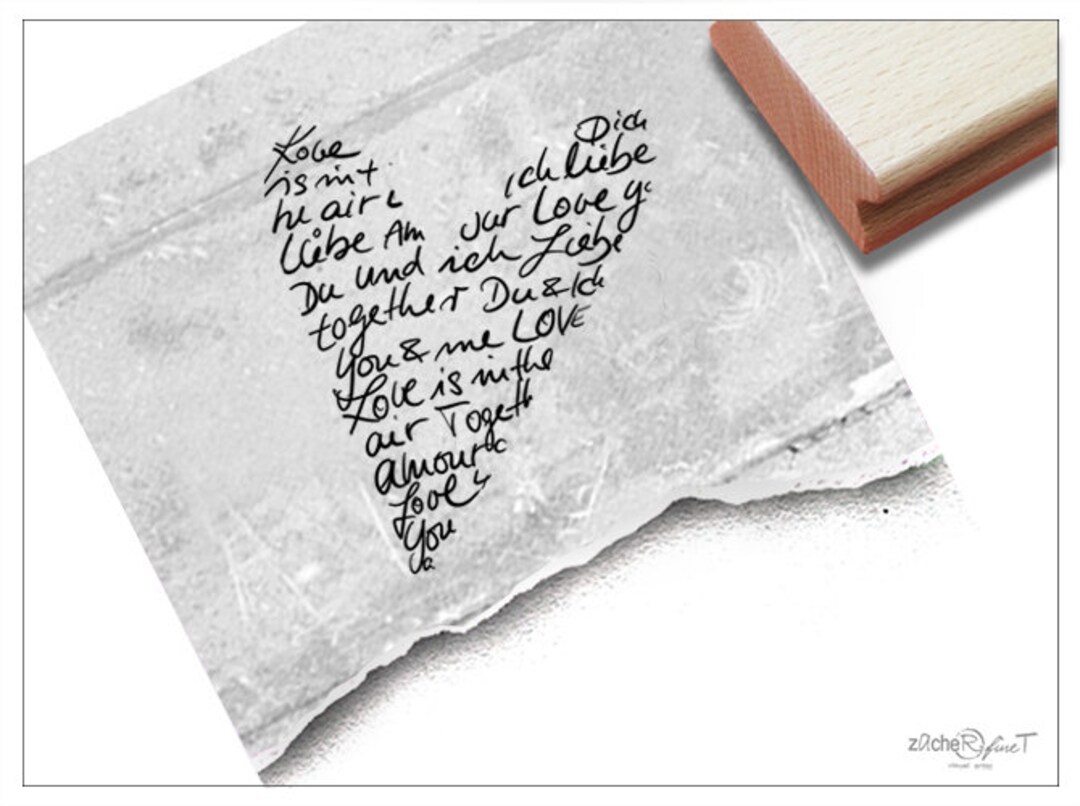 Love
is in t
he air L
Dich
ich liebe
Liebe Am
our Love yo
Du und ich Liebe
together Du & Ich
you & me LOVE
Love is in the
air Togeth
amour c
Love
you
zacheR fineT
visual artist